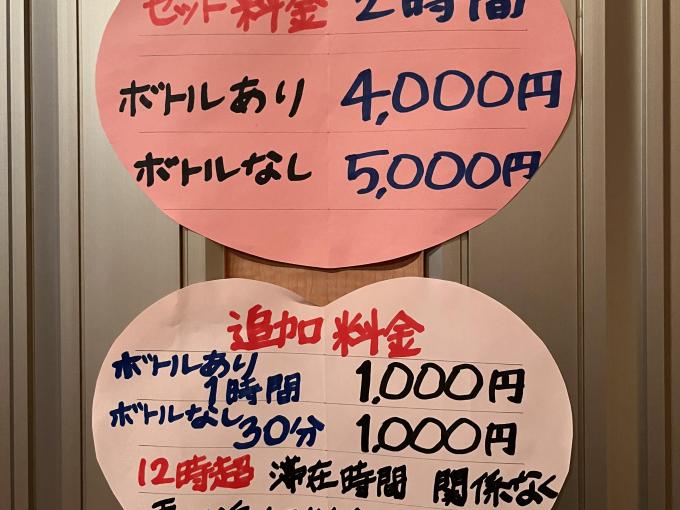 セット料金 2時間
ボトルあり 4,000円
ボトルなし 5,000円
追加料金
ボトルあり
1時間 1,000円
ボトルなし
30分 1,000円
12時超 滞在時間 関係なく